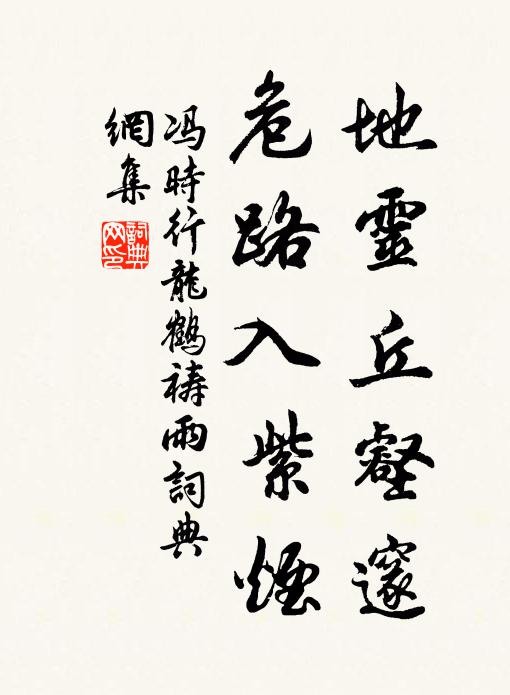 地靈丘壑邃
危路入紫煙
冯時行龍鶴禱雨詞典
網集
詞典
网印